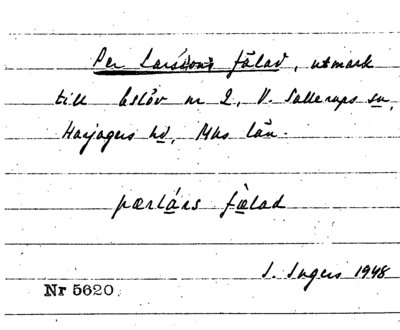 Per Larssons fälad, utmark
till Eslöv nr 2, V. Sallerups sn,
Harjagers hd, Mhs län.
pærlárs fälad
I. Ingers 1948
Nr 5620